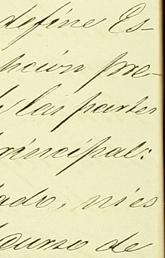 define Es-
pción pre-
las partes
principal:
ado, ni es
curso de